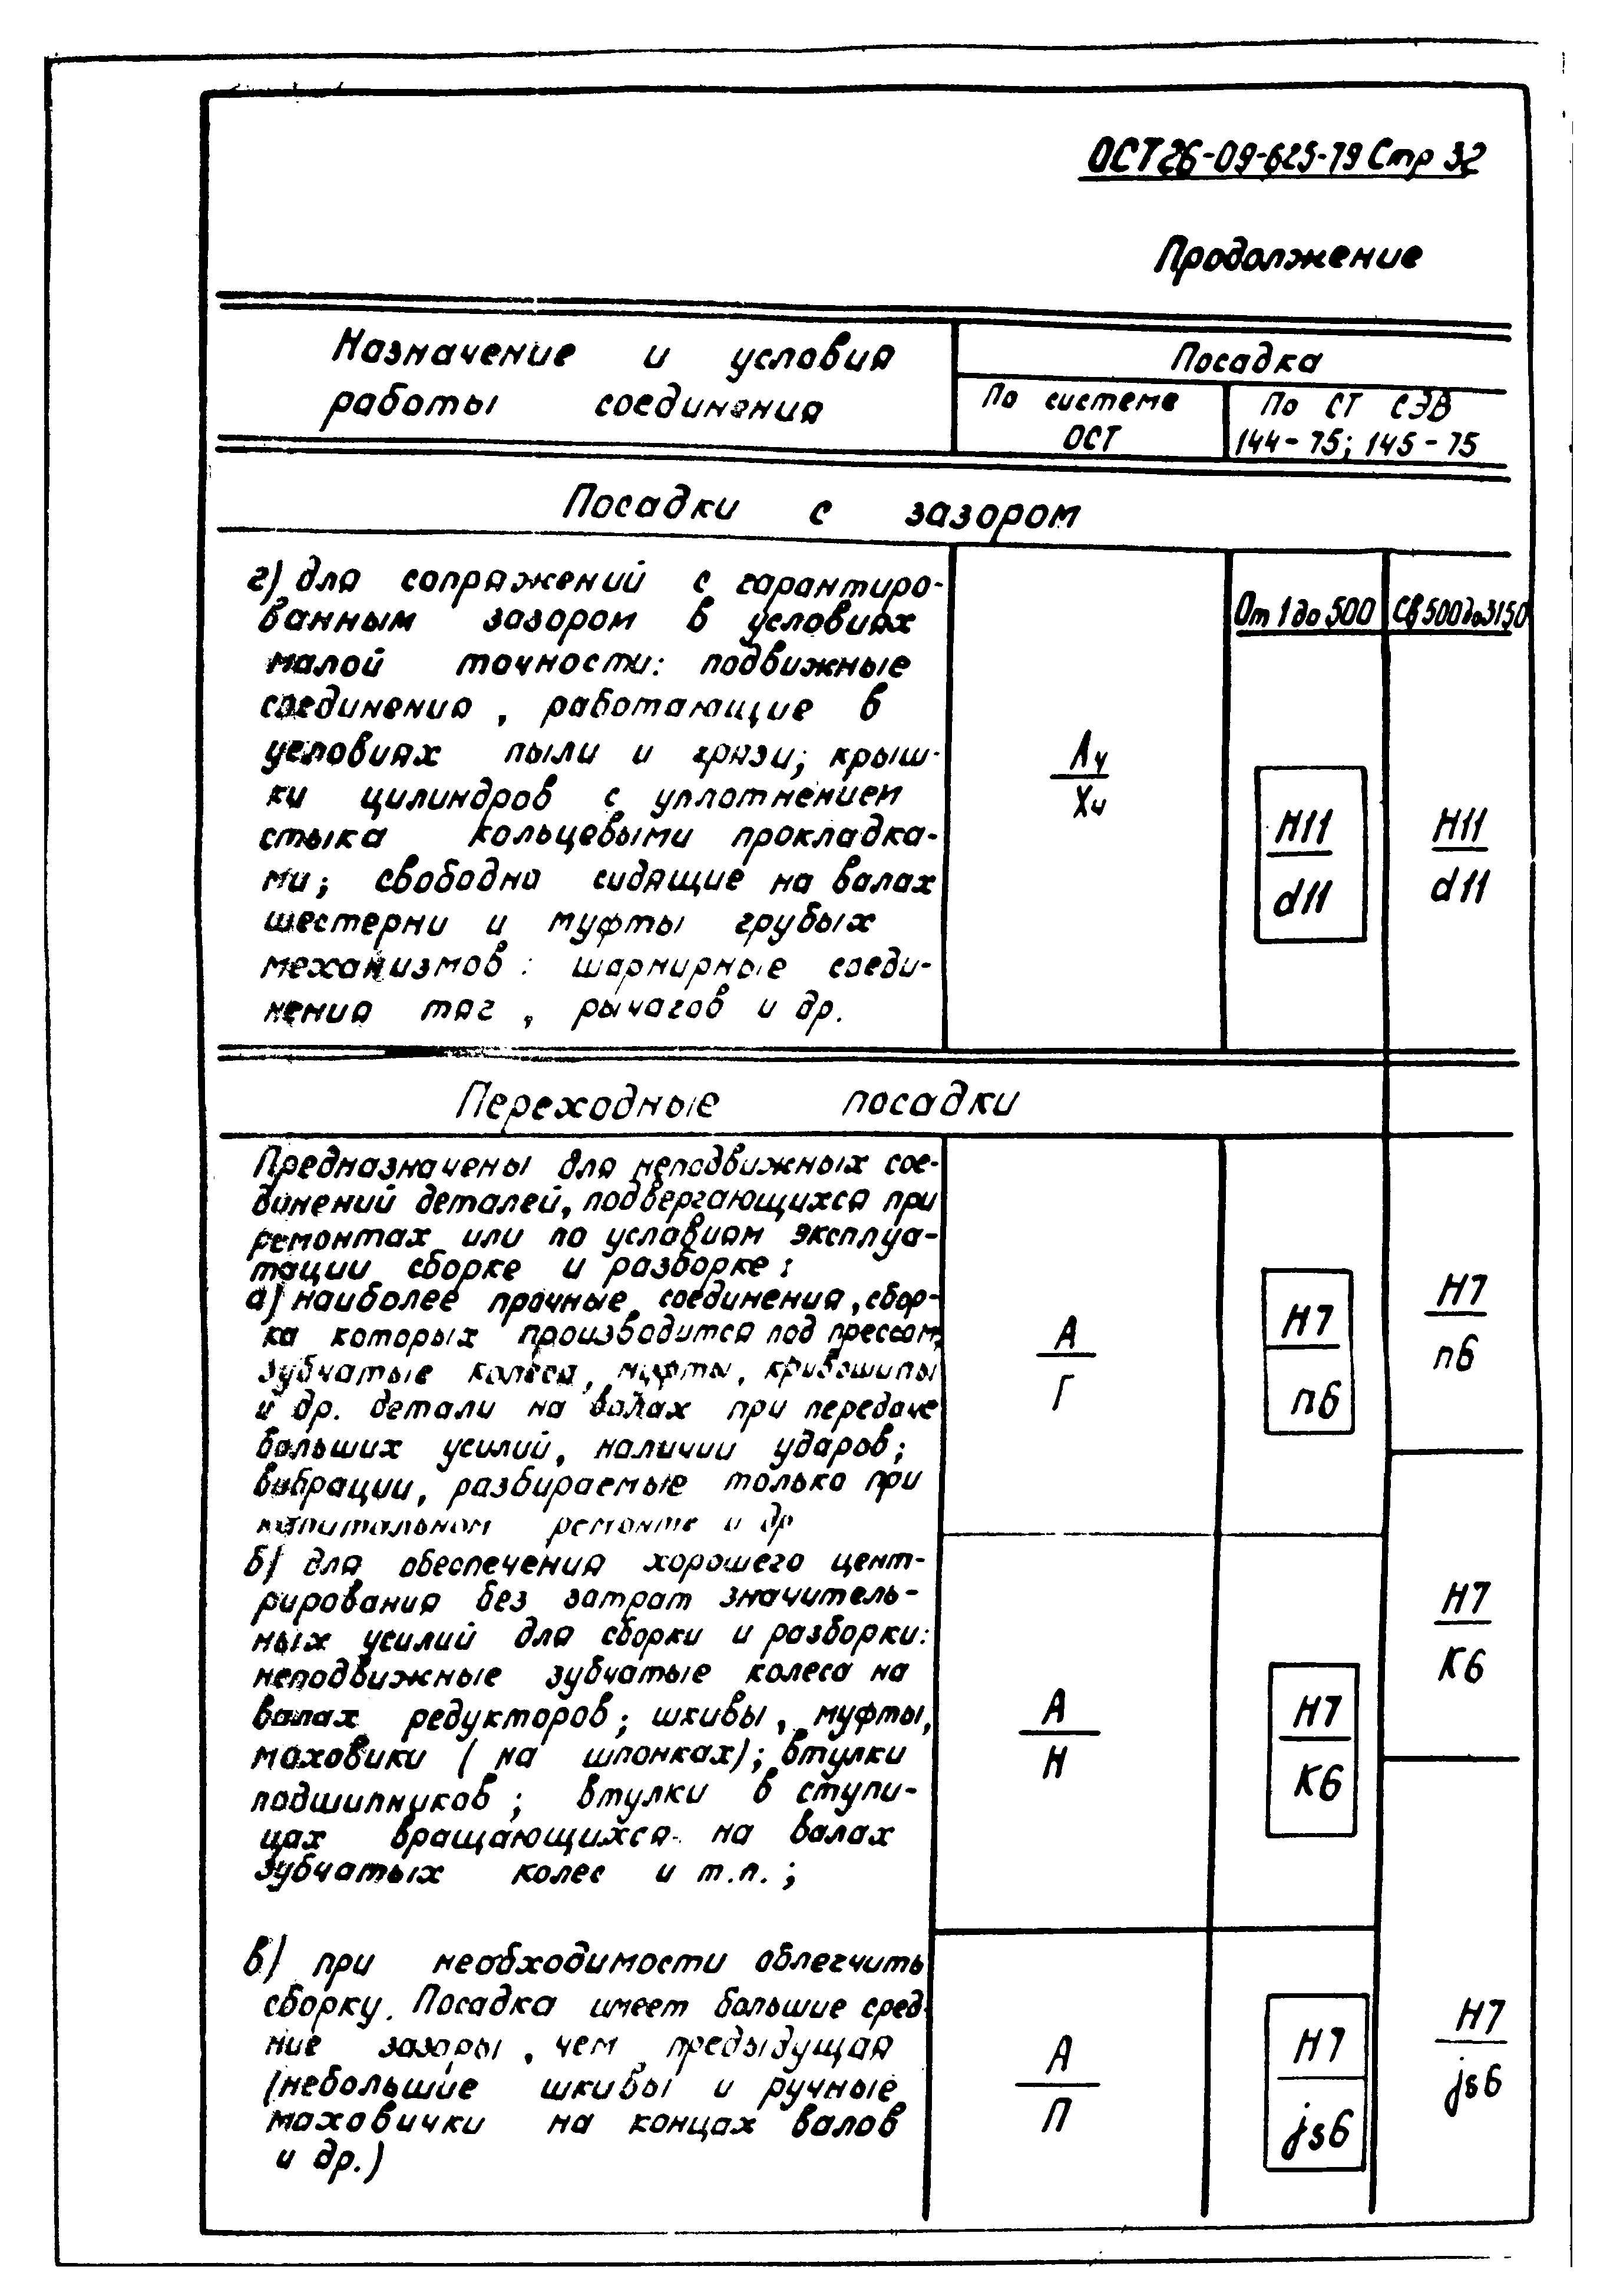 ОСТ26-09-625-79 Стр 32
Продолжение
Назначение и условия
работы соединения
Посадка
По системе
ОСТ
По СТ СЭВ
144-75; 145-75
Посадки с зазором
г) для сопряжений с гарантиро-
ванным зазором в условиях
малой точности: подвижные
соединения, работающие в
условиях пыли и грязи; крыш-
ки цилиндров с уплотнением
стыка кольцевыми прокладка-
ми; свободно сидящие на валах
шестерни и муфты грубых
механизмов: шарнирные соеди-
нения тяг, рычагов и др.
От 1 до 500
Св 500 до 3150
А4
Х4
H11
d11
H11
d11
Переходные посадки
Предназначены для неподвижных сое-
динений деталей, подвергающихся при
ремонтах или по условиям эксплуа-
тации сборке и разборке:
а) наиболее прочные соединения, сбор-
ка которых производится под прессом,
зубчатые колеса, муфты, кривошипы
и др. детали на валах при передаче
больших усилий, наличии ударов;
вибрации, разбираемые только при
капитальном ремонте и др
А
Г
H7
n6
H7
n6
б) для обеспечения хорошего цент-
рирования без затрат значитель-
ных усилий для сборки и разборки:
неподвижные зубчатые колеса на
валах редукторов; шкивы, муфты,
маховики (на шпонках); втулки
подшипников; втулки в ступи-
цах вращающихся на валах
зубчатых колес и т.п.;
А
Н
H7
K6
H7
K6
в) при необходимости облегчить
сборку. Посадка имеет большие сред-
ние зазоры, чем предыдущая
(небольшие шкивы и ручные
маховички на концах валов
и др.)
А
П
H7
js6
H7
js6